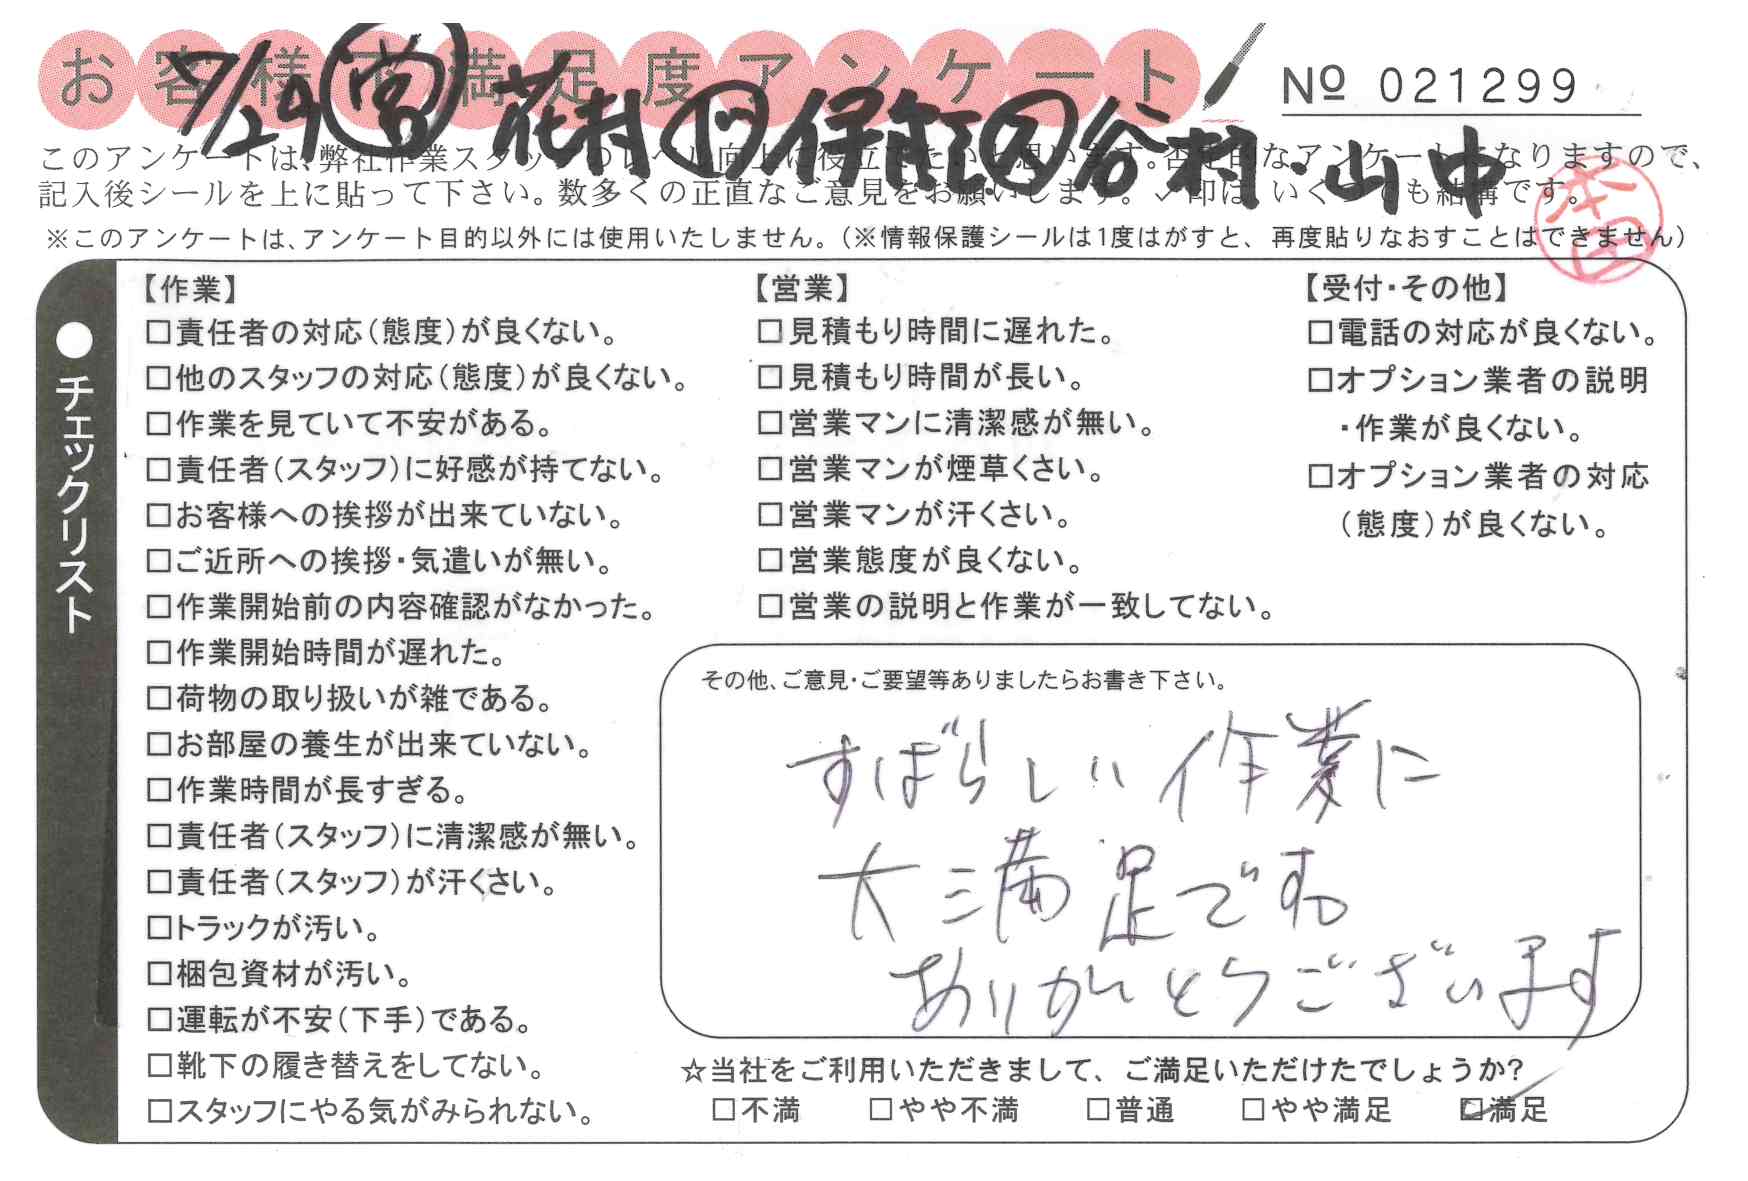 お客様不満足度アンケート
No 021299
7/29 営 花村 伊
谷村・山中
このアンケートは、弊社作業スタッフのレベル向上に役立てたいと思います。否定的なアンケートになりますので、
記入後シールを上に貼って下さい。数多くの正直なご意見をお願いします。✓印は、いくつでも結構です。
※このアンケートは、アンケート目的以外には使用いたしません。(※情報保護シールは1度はがすと、再度貼りなおすことはできません)
本田
●チェックリスト
【作業】
□責任者の対応(態度)が良くない。
□他のスタッフの対応(態度)が良くない。
□作業を見ていて不安がある。
□責任者(スタッフ)に好感が持てない。
□お客様への挨拶が出来ていない。
□ご近所への挨拶・気遣いが無い。
□作業開始前の内容確認がなかった。
□作業開始時間が遅れた。
□荷物の取り扱いが雑である。
□お部屋の養生が出来ていない。
□作業時間が長すぎる。
□責任者(スタッフ)に清潔感が無い。
□責任者(スタッフ)が汗くさい。
□トラックが汚い。
□梱包資材が汚い。
□運転が不安(下手)である。
□靴下の履き替えをしてない。
□スタッフにやる気がみられない。
【営業】
□見積もり時間に遅れた。
□見積もり時間が長い。
□営業マンに清潔感が無い。
□営業マンが煙草くさい。
□営業マンが汗くさい。
□営業態度が良くない。
□営業の説明と作業が一致してない。
【受付・その他】
□電話の対応が良くない。
□オプション業者の説明
・作業が良くない。
□オプション業者の対応
(態度)が良くない。
その他、ご意見・ご要望等ありましたらお書き下さい。
すばらしい作業に
大満足です
ありがとうございます
☆当社をご利用いただきまして、ご満足いただけたでしょうか?
□不満 □やや不満 □普通 □やや満足 ☑満足